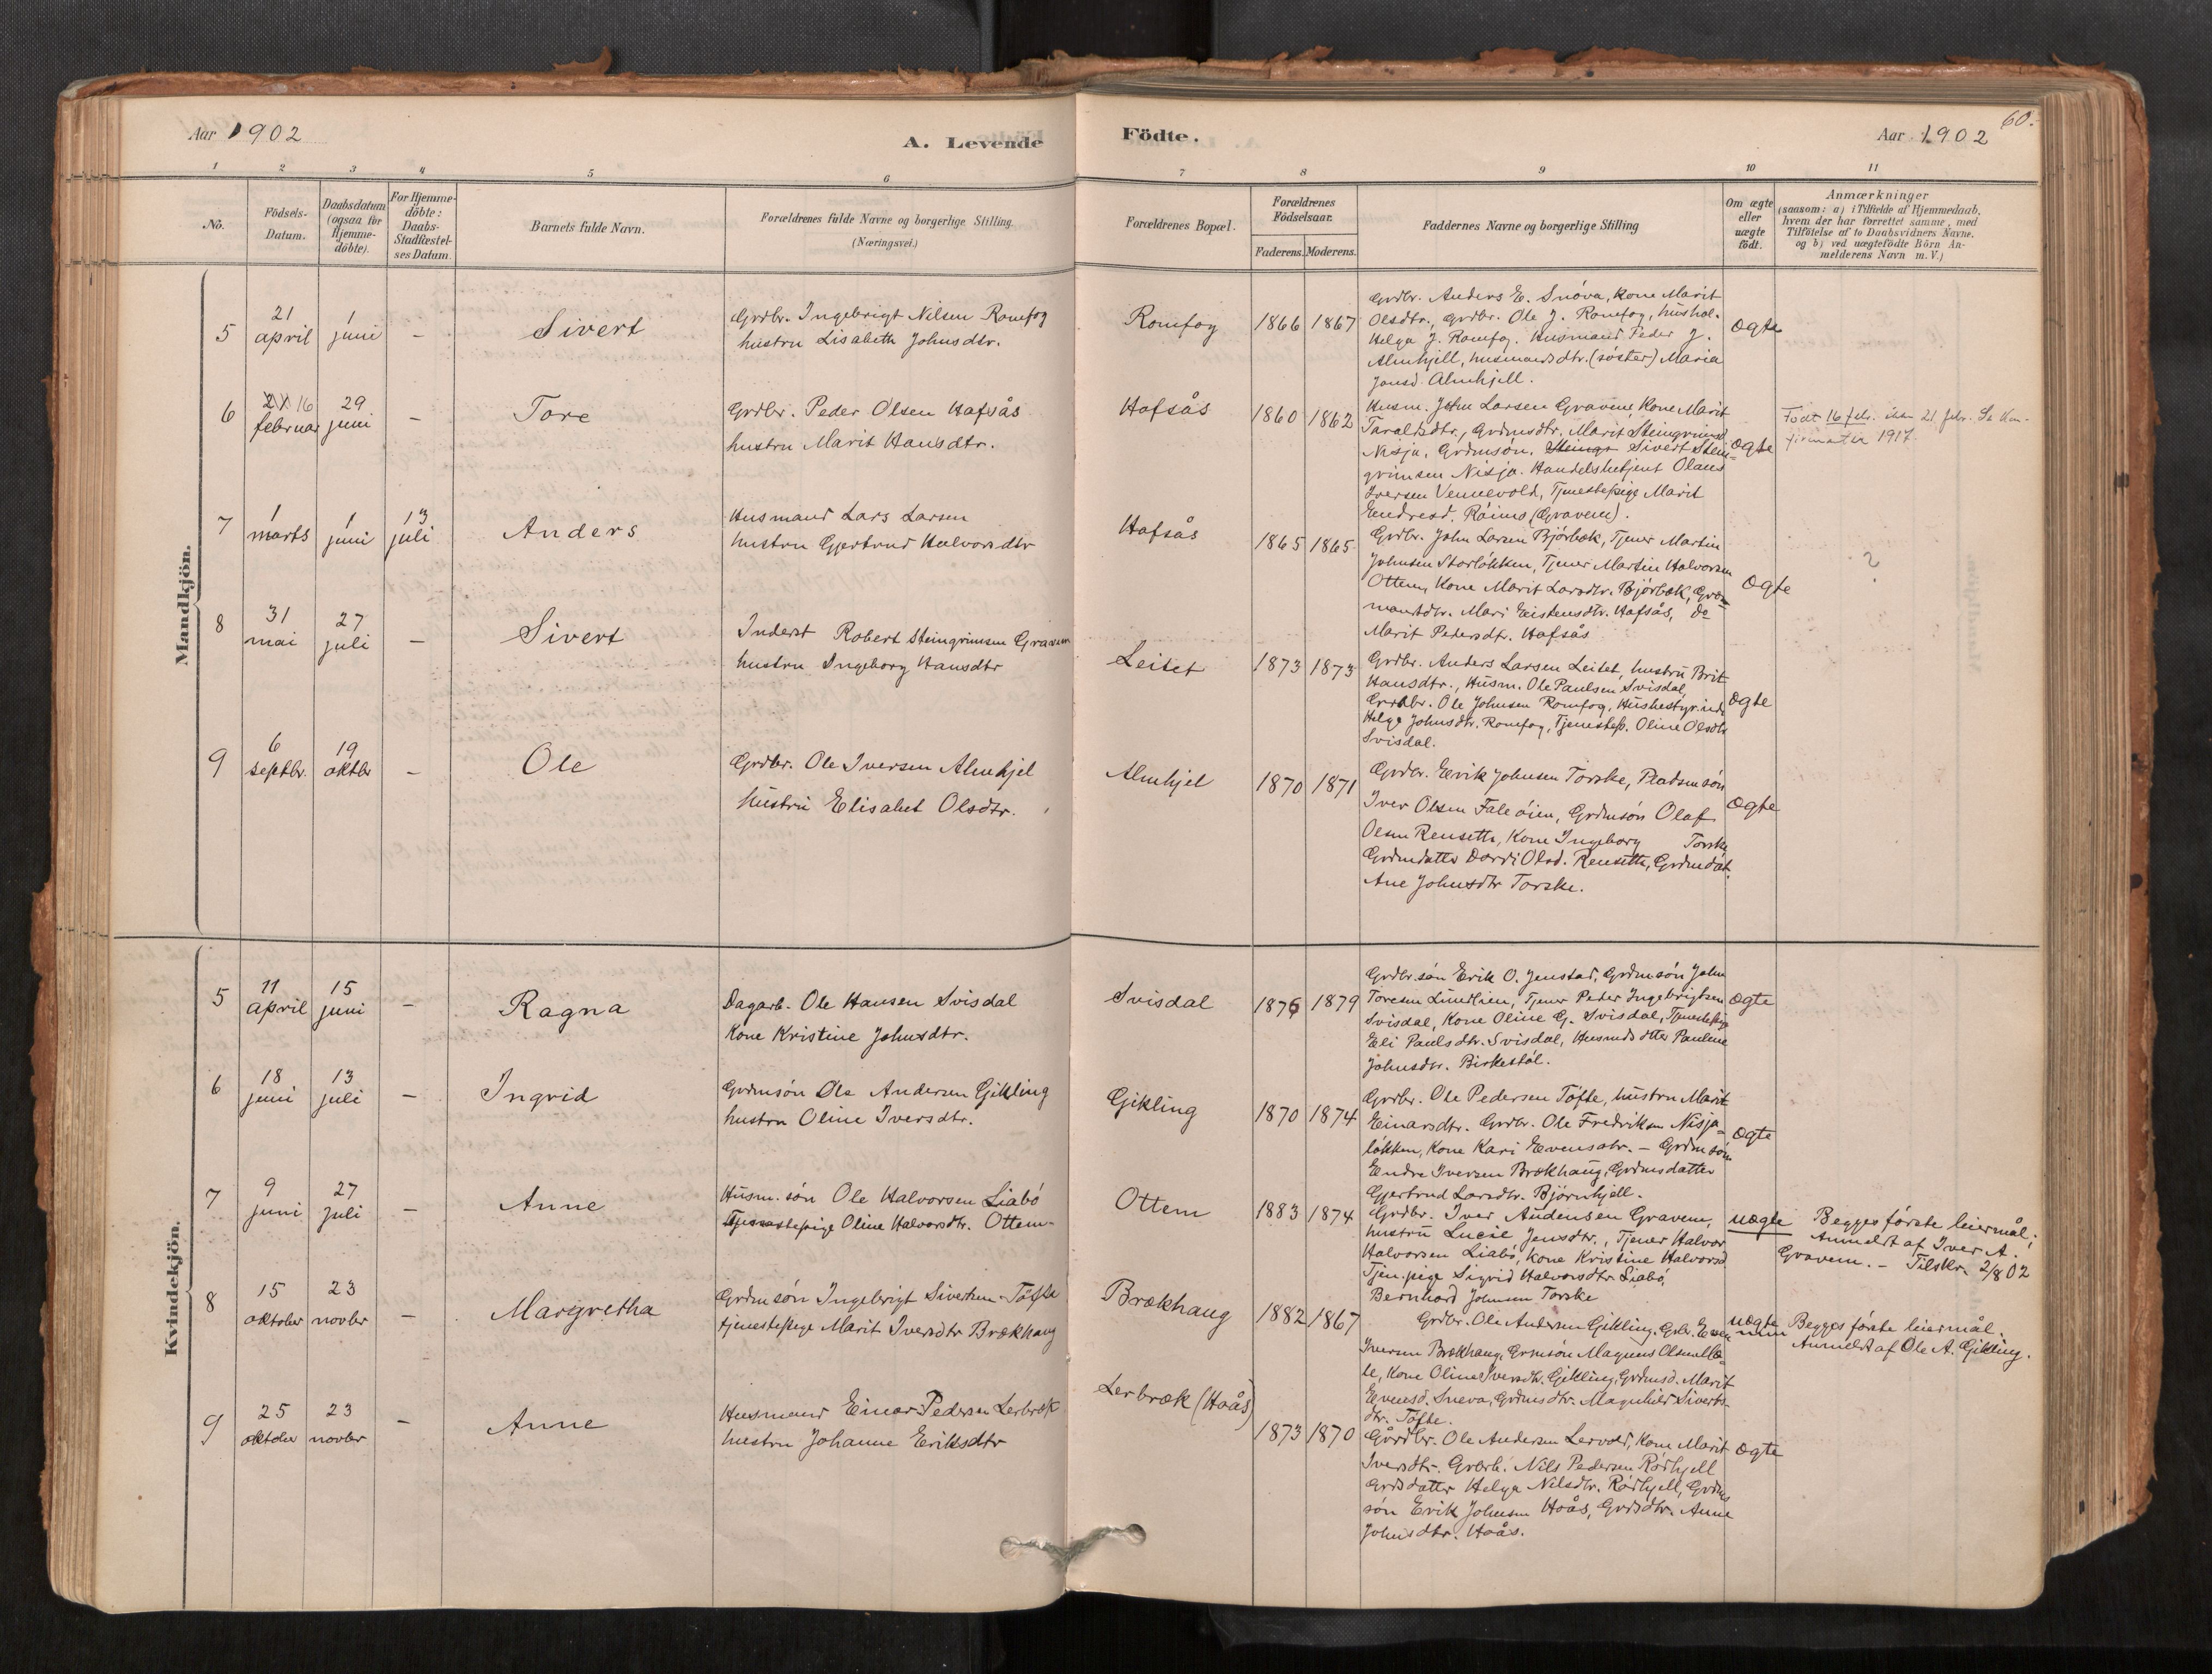 Aar 1902
A. Levende
Födte.
Aar 1902
60.
1 2 3 4 5 6 7 8 9 10 11
No.
Födsels-
Datum.
Daabsdatum
(ogsaa for
Hjemme-
döbte).
For Hjemme-
döbte:
Daabs-
Stadfæstel-
ses Datum
Barnets fulde Navn.
Forældrenes fulde Navne og borgerlige Stilling.
(Næringsvei.)
Forældrenes Bopæl.
Forældrenes
Födselsaar.
Faderens. Moderens.
Faddernes Navne og borgerlige Stilling
Om ægte
eller
uægte
födt.
Anmærkninger
(saasom: a) i Tilfælde af Hjemmedaab,
hvem der har forrettet samme, med
Tilföielse af to Daabsvidners Navne,
og b) ved uægtefödte Börn An-
melderens Navn m. V.)
Mandkjön.
5
21
april
1
juni
-
Sivert
Grdbr. Ingebrigt Nilsen Romfog
hustru Lisabeth Johnsdtr.
Romfog
1866 1867
Grdbr. Anders E. Snöva, Kone Marit
Olsdtr., Grdbr. Ole J. Romfog, hushol.
Helga J. Romfog. Husmand Peder J.
Almhjell, husmandsdtr. (söster) Maria
Jonsd. Almhjell.
Ægte
6
21 16
februar
29
juni
-
Tore
Grdbr. Peder Olsen Hafsås
hustru Marit Hansdtr.
Hafsås
1860 1862
Husm. John Larsen Gravem, Kone Marit
Taraldsdtr., Grdmsdtr. Marit Steingrimsd.
Nisja, Grdmsön. Steingr Sivert Stein-
grimsen Nisja. Handelsbetjent Olaus
Iversen Vennevold, Tjenestepige Marit
Eendresd. Röimo (Gravem).
Ægte
Født 16 feb. ikke 21 febr. Se Kon-
firmation 1917.
7
1
marts
1
juni
13
juli
Anders
Husmand Lars Larsen
hustru Gjertrud Halvorsdtr
Hafsås
1865 1865
Grdbr. John Larsen Björbæk, Tjener Martin
Johnsen Storlökken, Tjener Martin Halvorsen
Ottem, Kone Marit Larsdtr. Björbæk, Grd-
mandsdtr. Mari Eistensdtr. Hafsås, do
Marit Pedersdtr. Hafsås
Ægte
?
8
31
mai
27
juli
-
Sivert
Inderst Robert Steingrimsen Gravem
hustru Ingeborg Hansdtr
Leitet
1873 1873
Grdbr. Anders Larsen Leitet, hustru Brit
Hansdtr., Husm. Ole Paulsen Svisdal,
Grdbr. Ole Johnsen Romfog, Husbestyrinde
Helga Johnsdtr. Romfog, Tjenestep. Oline Olsdtr
Svisdal.
Ægte
9
6
septbr.
19
oktbr
-
Ole
Grdbr. Ole Iversen Almhjel
hustru Elisabet Olsdtr.
Almhjel
1870 1871
Grdbr. Eerik Johnsen Torske, Pladsmsön
Iver Olsen Faleöien, Grdmsön Olaf
Olsen Rensetth, Kone Ingeborg Torske
Grdmdatter Dordi Olsd. Rensetth, Grdmdat.
Ane Johnsdtr Torske.
Ægte
Kvindekjön.
5
11
april
15
juni
-
Ragna
Dagarb. Ole Hansen Svisdal
Kone Kristine Johnsdtr.
Svisdal
1876 1879
Grdbr.sön Erik O. Jenstad, Grdmsön John
Toresen Lundlien, Tjener Peter Ingebrigtsen
Svisdal, Kone Oline G. Svisdal, Tjenestepige
Eli Paulsdtr. Svisdal, Husmdsdtter Pauline
Johnsdtr. Birkestöl.
Ægte
6
18
juni
13
juli
-
Ingrid
Grdmsön Ole Andersen Gjikling
hustru Oline Iversdtr.
Gjikling
1870 1874
Grdbr. Ole Pedersen Töfte, hustru Marit
Einarsdtr. Grdbr. Ole Fredriksen Nisja-
lökken, Kone Kari Evensdtr. - Grdmsön
Endre Iversen Brækhaug, Grdmsdatter
Gjertrud Larsdtr. Björnhjell.
Ægte
7
9
juni
27
juli
-
Anne
Husm. sön Ole Halvorsen Liabö
Tjenestepige Oline Halvorsdtr. Ottem
Ottem
1883 1874
Grdbr. Iver Andensen Gravem,
hustru Lucie Jensdtr., Tjener Halvor
Halvorsen Liabö, Kone Kristine Halvorsd.
Tjen.pige Sigrid Halvorsdtr Liabö,
Bernhard Johnsen Torske
uægte
Begges förste leiermål;
Anmeldt af Iver A.
Gravem. - Tilskr. 2/8 02
8
15
oktober
23
novbr
-
Margretha
Grdmsön Ingebrigt Sivertsen Töfte
tjenestepige Marit Iversdtr Brækhaug
Brækhaug
1882 1867
Grdbr. Ole Andersen Gikling. Grbr. Even
Iversen Brækhaug, Grmsön Magnus Olsen
te, Kone Oline Iversdtr. Gjikling, Grdmsd. Marit
Evensd. Sneva, Grdmsdtr. Magnhild Siverts-
dtr. Töfte.
uægte
Begges förste leiermål.
Anmeldt af Ole A. Gjikling.
9
25
oktober
23
novbr
-
Anne
Husmand Einar Pedersen Lerbræk
hustru Johanne Eriksdtr
Lerbræk (Hoås)
1873 1870
Gårdbr. Ole Andersen Lervold, Kone Marit
Iversdtr. Grdbr. Nils Pedersen Rödhjell
Grdsdatter Helga Nilsdtr. Rödhjell, Grdms
sön Erik Johnsen Hoås, Grdsdtr. Anne
Johnsdtr. Hoås.
Ægte